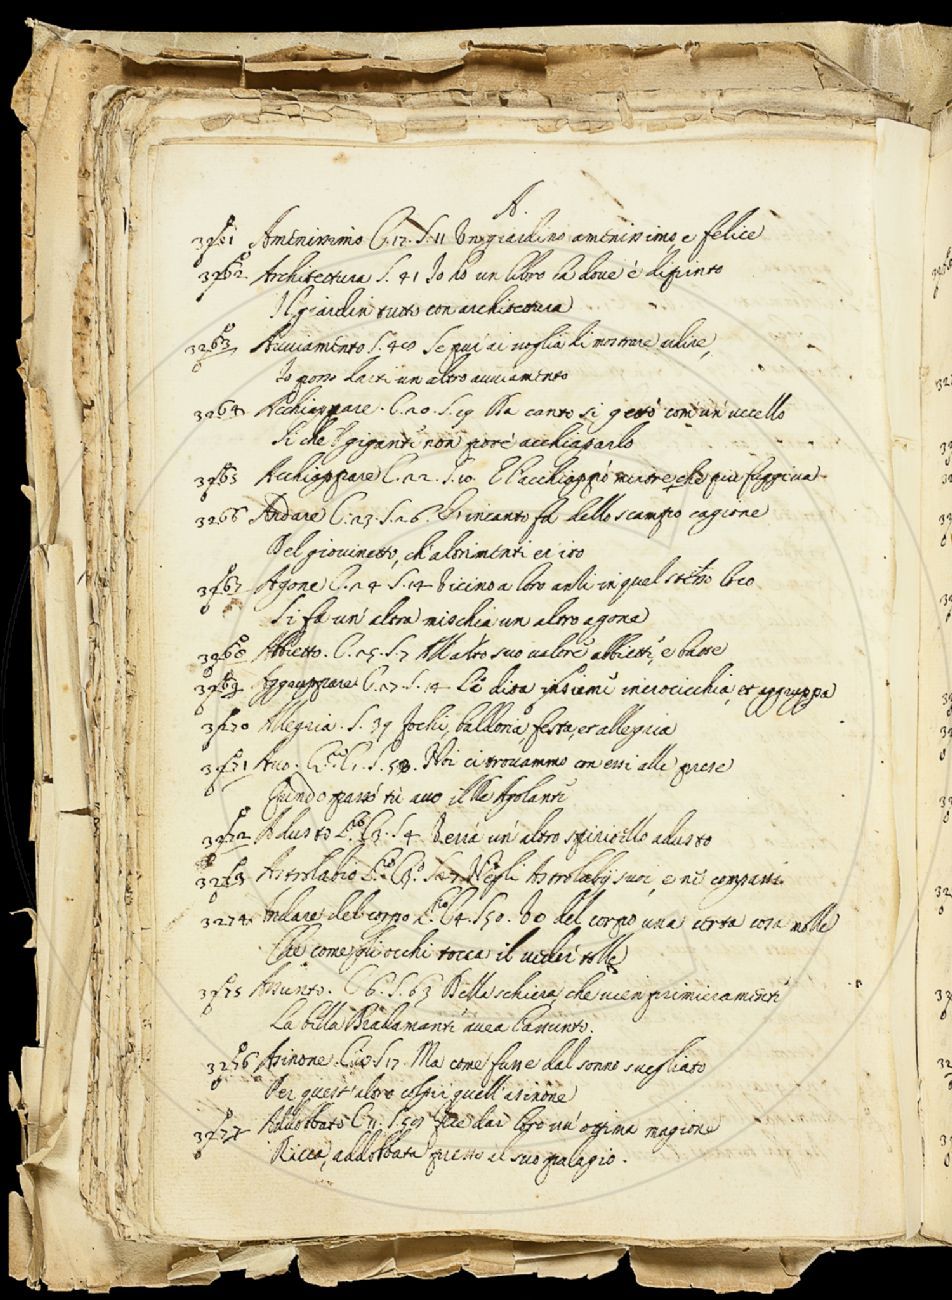 A.
3261 Amenissimo C. 12. S. 11 Un giardino amenissimo, e felice
3262 Architettura S. 41 Io hò un libro la dove è dipinto
Il giardin tutto con architettura
3263 Avviamento S. 48 Se pur ai voglia di mostrare
Io posso darti un altro avviamento
3264 Acchiappare. C. 20. S. 19 Da canto si gettò com un' uccello
Si che i giganti non potè acchiaparlo
3265 Acchiappare C. 22. S. 10. E l'acchiappò mentre che più fuggiva
3266 Andare C. 23. S. 26. L'incanto fù dello scampo cagione
Del giovinetto, ch' altrimenti er ito
3267 Agone C. 24 S. 14 Vicino a loro in quel stesso loco
Si fà un' altra mischia un altro agone
3268 Abbietto. C. 25. S. 7 All' alto suo valore abbietti, e basse
3269 Aggruppare C. 27. S. 14 Le dita insieme incrocicchia, et aggruppa
3270 Allegria. S. 39 fochi, baldoria festa, et allegria
3271 Avo. S. 58. Noi ci trovammo con essi alle prese
Quando passò tù avo Agolante
3272 Adusto L.º C. 3. S. 4 Verrà un' altro spiritello adusto
3273 Astrolabio L.º Negli Astrolabij suoi, e nè compassi
3274 Andare del corpo L.º C. 4. S. 50. Và del corpo una certa cosa molle
Che come gli occhi tocca il veder tolle
3275 Assunto. C. 6. S. 63 Della schiera che vien primieramente
La bella Bradamante avea l'assunto.
3276 Asinone. S. 17. Ma come fusse dal sonno svegliato
Per quest' altro colpir quell' asinone
3277 Addobbato C. 11. S. 58 fece dar loro un' ottima magione
Ricca, addobbata presso al suo palagio.